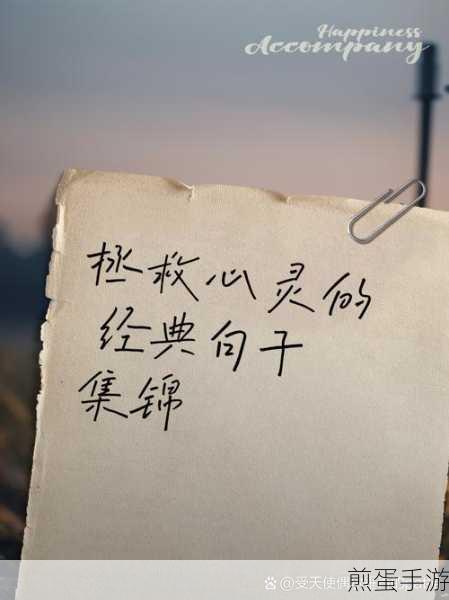 Happiness
Accompany
拯救心灵的
经典句子
集锦
煎蛋手游
@受天使偶